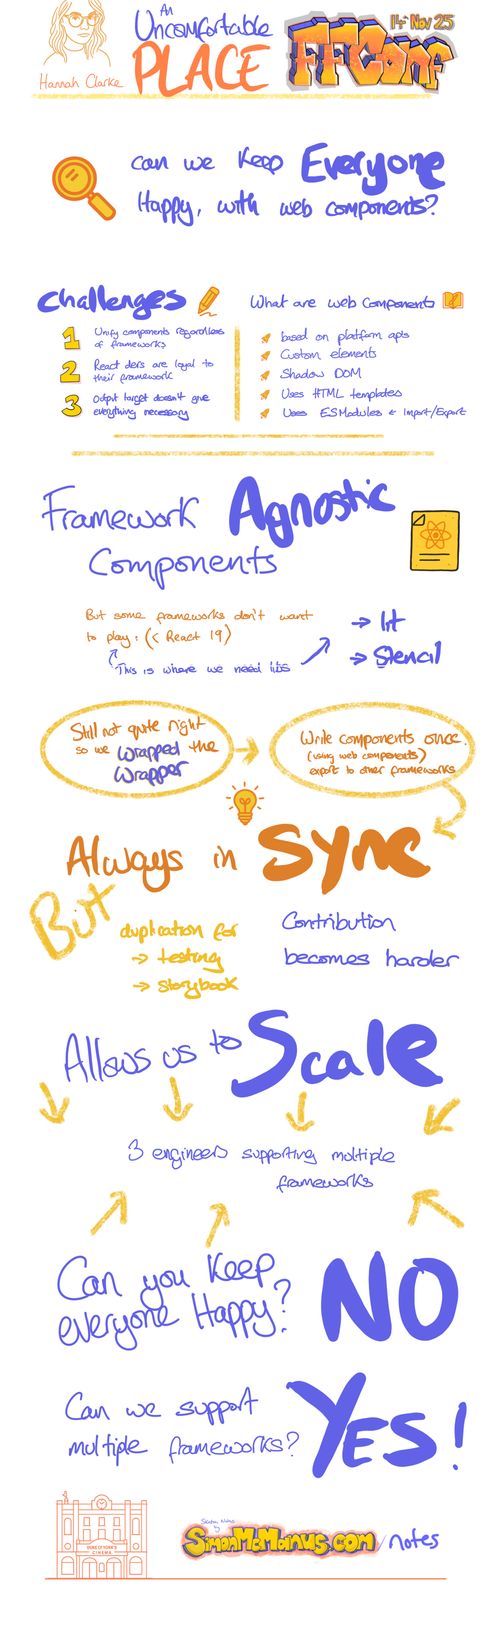 An
Uncomfortable
PLACE
Hannah Clarke
14 Nov 25
FFConf
Can we keep Everyone
Happy, with web components?
Challenges
1 Unify components regardless
of frameworks
2 React devs are loyal to
their framework
3 Output target doesn't give
everything necessary
What are web components
based on platform apis
Custom elements
Shadow DOM
Uses HTML templates
Uses ESModules & Import/Export
Framework Agnostic
Components
But some frameworks don't want
to play :( (< React 19)
This is where we need libs
→ Lit
→ Stencil
Still not quite right
so we Wrapped the
Wrapper
Write components once
(using web components)
export to other frameworks
Always in Sync
But
duplication for
→ testing
→ storybook
Contribution
becomes harder
Allows us to Scale
3 engineers supporting multiple
frameworks
Can you keep
everyone Happy?
NO
Can we support
multiple frameworks?
YES!
DUKE OF YORK'S
CINEMA
Sketch Notes
by
SimonMcManus.com/notes